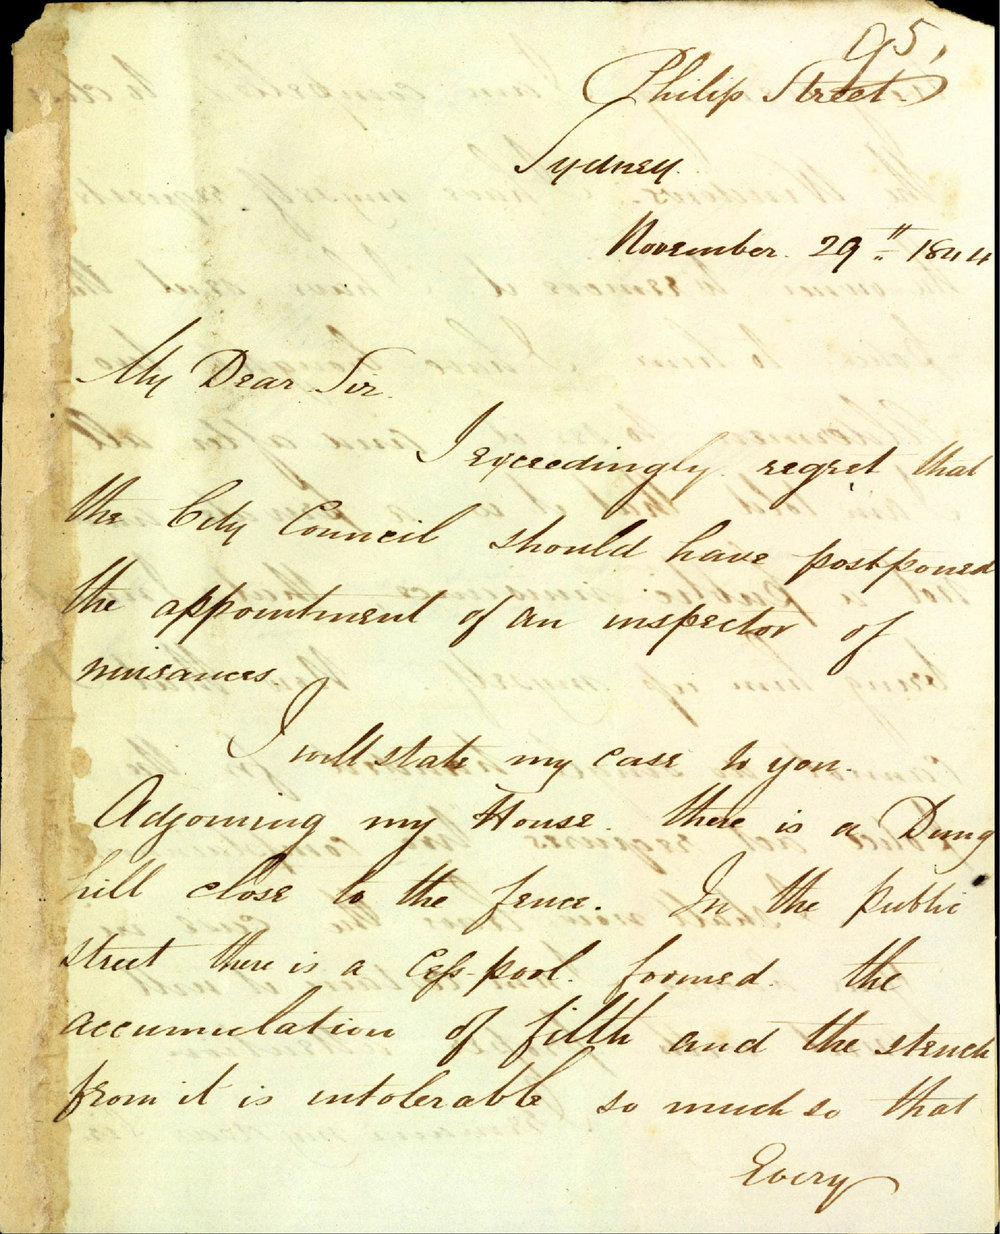 95,
Philip Street
Sydney.
November. 29th 1844
My Dear Sir.
I exceedingly regret that
the City Council should have postponed
the appointment of an inspector of
nuisances
I will state my case to you.
Adjoining my House. there is a Dung
hill close to the fence. In the public
street there is a Cess-pool. formed. the
accumulation of filth and the stench
from it is intolerable so much so that
Every